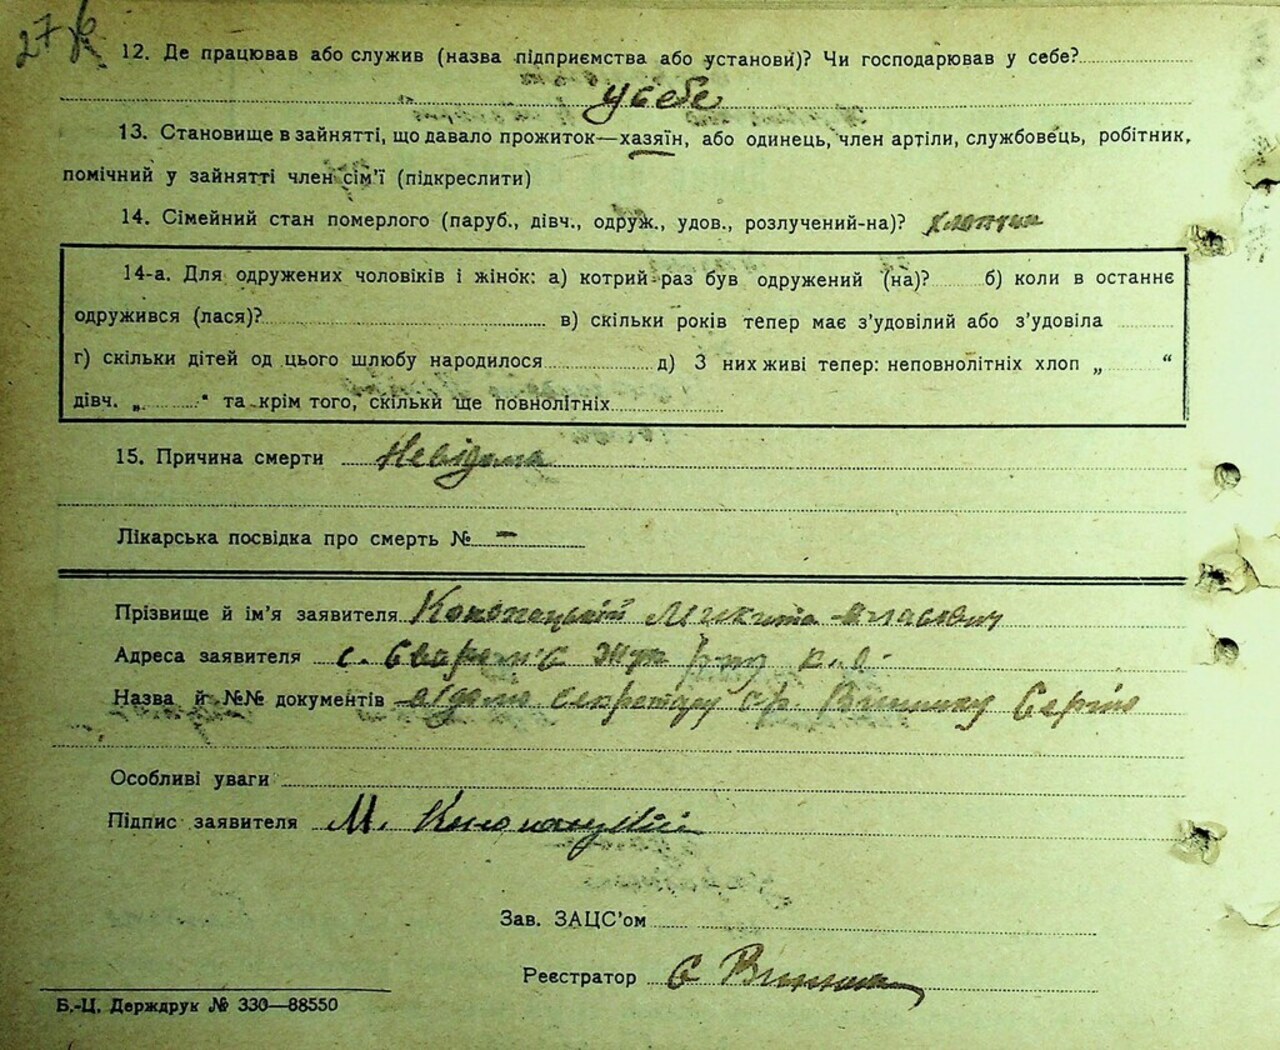 27
12. Де працював або служив (назва підприємства або установи)? Чи господарював у себе?
у себе
13. Становище в зайнятті, що давало прожиток—хазяїн, або одинець, член артіли, службовець, робітник,
помічний у зайнятті член сім'ї (підкреслити)
14. Сімейний стан померлого (паруб., дівч., одруж., удов., розлучений-на)?
14-а. Для одружених чоловіків і жінок: а) котрий раз був одружений (на)? б) коли в останнє
одружився (лася)? в) скільки років тепер має з'удовілий або з'удовіла
г) скільки дітей од цього шлюбу народилося д) З них живі тепер: неповнолітніх хлоп „ “
дівч. „ " та крім того, скільки ще повнолітніх
15. Причина смерти Невідома
Лікарська посвідка про смерть № —
Прізвище й ім'я заявителя Микита
Адреса заявителя с.
Назва й №№ документів секретару Сергію
Особливі уваги
Підпис заявителя М.
Зав. ЗАЦС'ом
Реєстратор Є
Б.-Ц. Держдрук № 330—88550